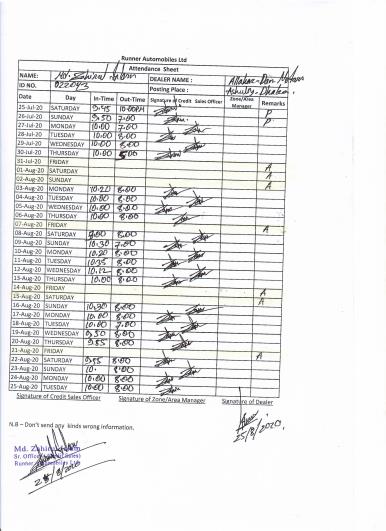 Runner Automobiles Ltd
Attendance Sheet
NAME: Md. Zahirul Islam DEALER NAME :
ID NO. Posting Place :
Date Day In-Time Out-Time Signature of Credit Sales Officer Zone/Area Manager Remarks
25-Jul-20 SATURDAY 9.45 10.00PM P
26-Jul-20 SUNDAY 9.50 7.00 P
27-Jul-20 MONDAY 10.00 7.00
28-Jul-20 TUESDAY 10.00 8.00
29-Jul-20 WEDNESDAY 10.00 8.00
30-Jul-20 THURSDAY 10.00 5.00
31-Jul-20 FRIDAY
01-Aug-20 SATURDAY A
02-Aug-20 SUNDAY A
03-Aug-20 MONDAY 10.20 8.00 A
04-Aug-20 TUESDAY 10.00 8.00
05-Aug-20 WEDNESDAY 10.00 8.00
06-Aug-20 THURSDAY 10.00 8.00
07-Aug-20 FRIDAY A
08-Aug-20 SATURDAY 9.00 8.00
09-Aug-20 SUNDAY 10.30 7.00
10-Aug-20 MONDAY 10.20 8.00
11-Aug-20 TUESDAY 10.35 8.00
12-Aug-20 WEDNESDAY 10.12 8.00
13-Aug-20 THURSDAY 10.00 8.00
14-Aug-20 FRIDAY A
15-Aug-20 SATURDAY A
16-Aug-20 SUNDAY 10.30 8.00
17-Aug-20 MONDAY 10.00 8.00
18-Aug-20 TUESDAY 10.00 7.00
19-Aug-20 WEDNESDAY 9.50 8.00
20-Aug-20 THURSDAY 9.55 8.00
21-Aug-20 FRIDAY A
22-Aug-20 SATURDAY 9.55 8.00
23-Aug-20 SUNDAY 10. 8.00
24-Aug-20 MONDAY 10.00 8.00
25-Aug-20 TUESDAY 10.00 8.00
Signature of Credit Sales Officer Signature of Zone/Area Manager Signature of Dealer
25/8/2020
N.B – Don't send any kinds wrong information.
Md.
Sr. Officer
Runner
25/8/2020